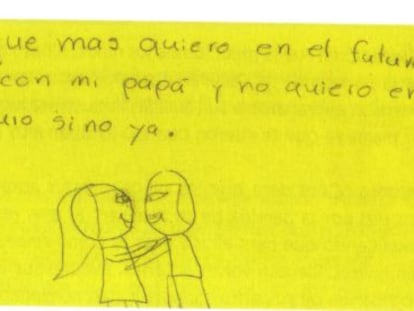 ue mas quiero en el futur
con mi papá y no quiero en
uio sino ya.